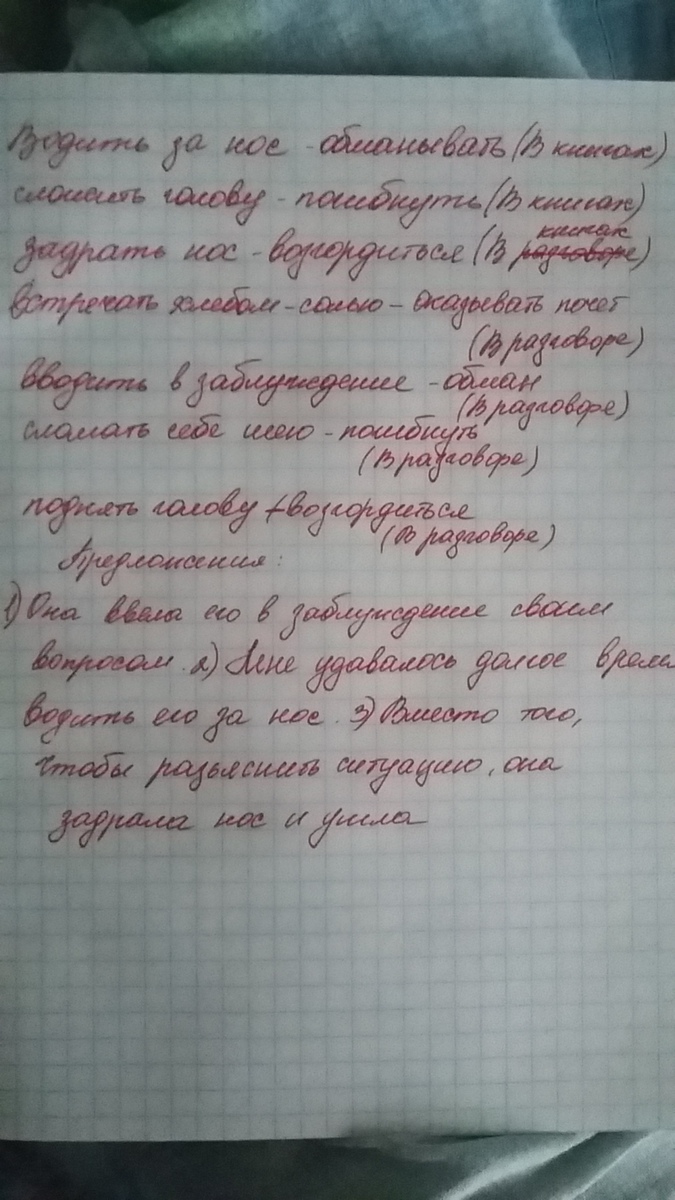 Водить за нос - обманывать (В книгах)
сложить голову - погибнуть (В книгах)
книгах
задрать нос - возгордиться (В разговоре)
встречать хлебом-солью - оказывать почет
(В разговоре)
вводить в заблуждение - обман
(В разговоре)
сламать себе шею - погибнуть
(В разговоре)
поднять голову - возгордиться
(В разговоре)
Предложения:
1) Она ввела его в заблуждение своим
вопросом. 2) Мне удавалось долгое время
водить его за нос. 3) Вместо того,
чтобы разъяснить ситуацию, она
задрала нос и ушла